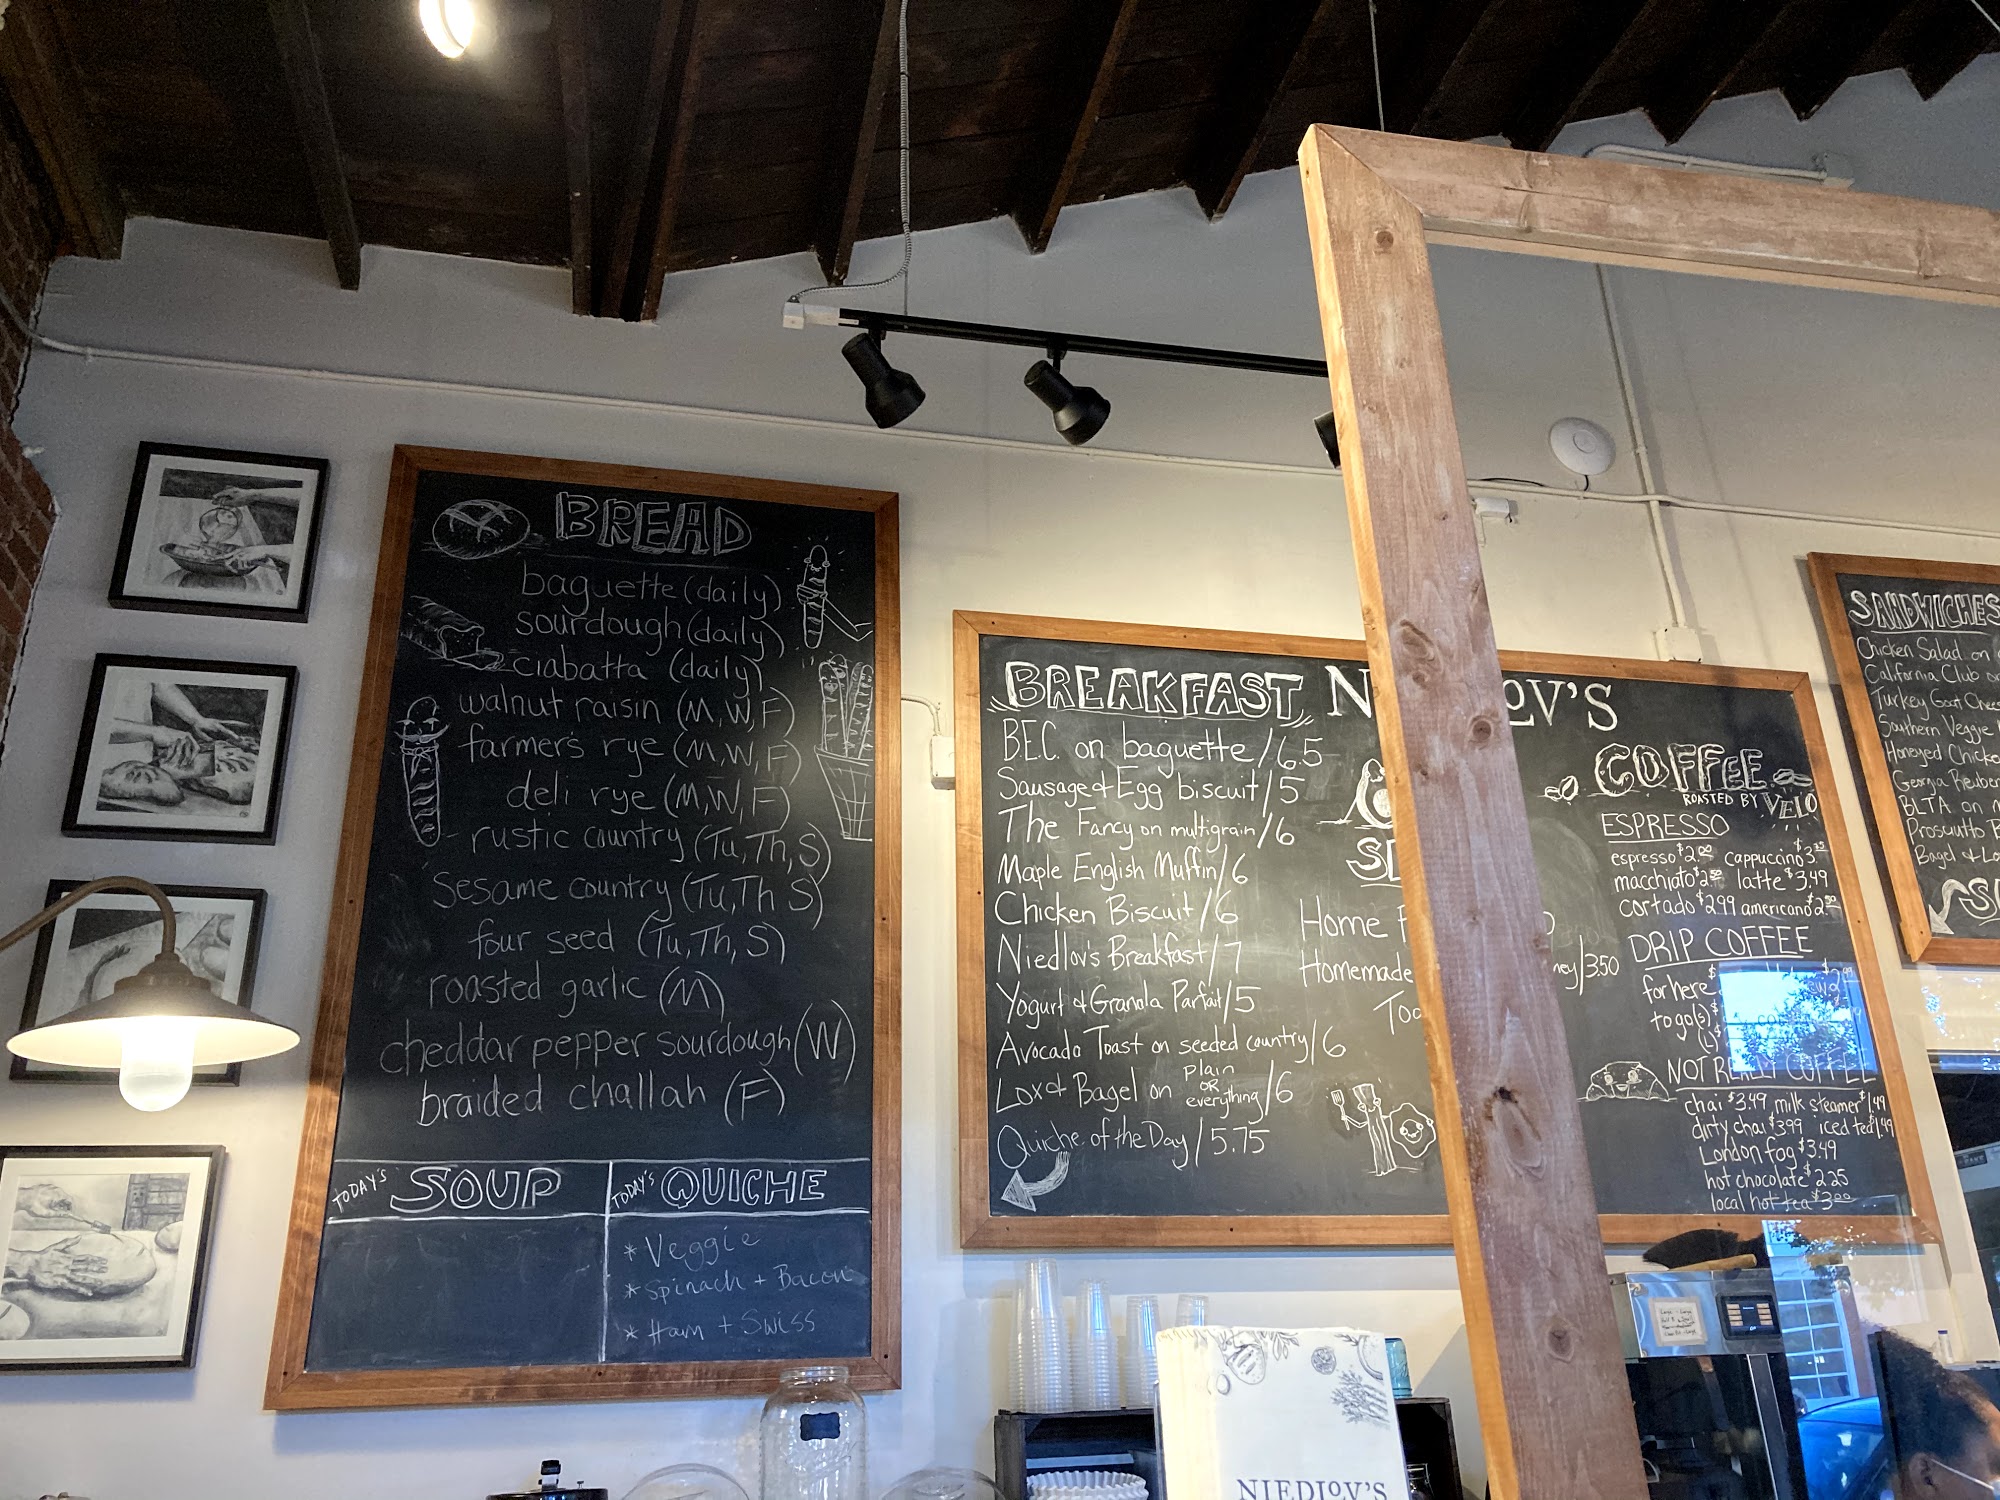 BREAD
baguette (daily)
sourdough (daily)
ciabatta (daily)
walnut raisin (M, W, F)
farmer's rye (M, W, F)
deli rye (M, W, F)
rustic country (Tu, Th, S)
Sesame country (Tu, Th S)
four seed (Tu, Th, S)
roasted garlic (M)
cheddar pepper sourdough (W)
braided challah (F)
TODAY'S SOUP
TODAY'S QUICHE
* Veggie
* Spinach + Bacon
* Ham + Swiss
BREAKFAST
B.E.C. on baguette / 6.5
Sausage & Egg biscuit / 5
The Fancy on multigrain / 6
Maple English Muffin / 6
Chicken Biscuit / 6
Niedlov's Breakfast / 7
Yogurt & Granola Parfait / 5
Avocado Toast on seeded country / 6
Lox & Bagel on plain OR everything / 6
Quiche of the Day / 5.75
Home
Homemade
/3.50
OV'S
COFFEE
ROASTED BY VELO
ESPRESSO
espresso $2.00 cappuccino $3.25
macchiato $2.50 latte $3.49
cortado $2.99 americano
DRIP COFFEE
for here
to go (s) $
(L) $
NOT REALLY COFFEE
chai $3.49 milk steamer $1.49
dirty chai $3.99 iced tea $1.99
London fog $3.49
hot chocolate $2.25
local hot tea $3.00
SANDWICHES
Chicken Salad on
California Club
Turkey Goat
Southern Veggie
Honeyed
Georgia
BLTA on
Prosciutto
Bagel &
NIEDLOV'S